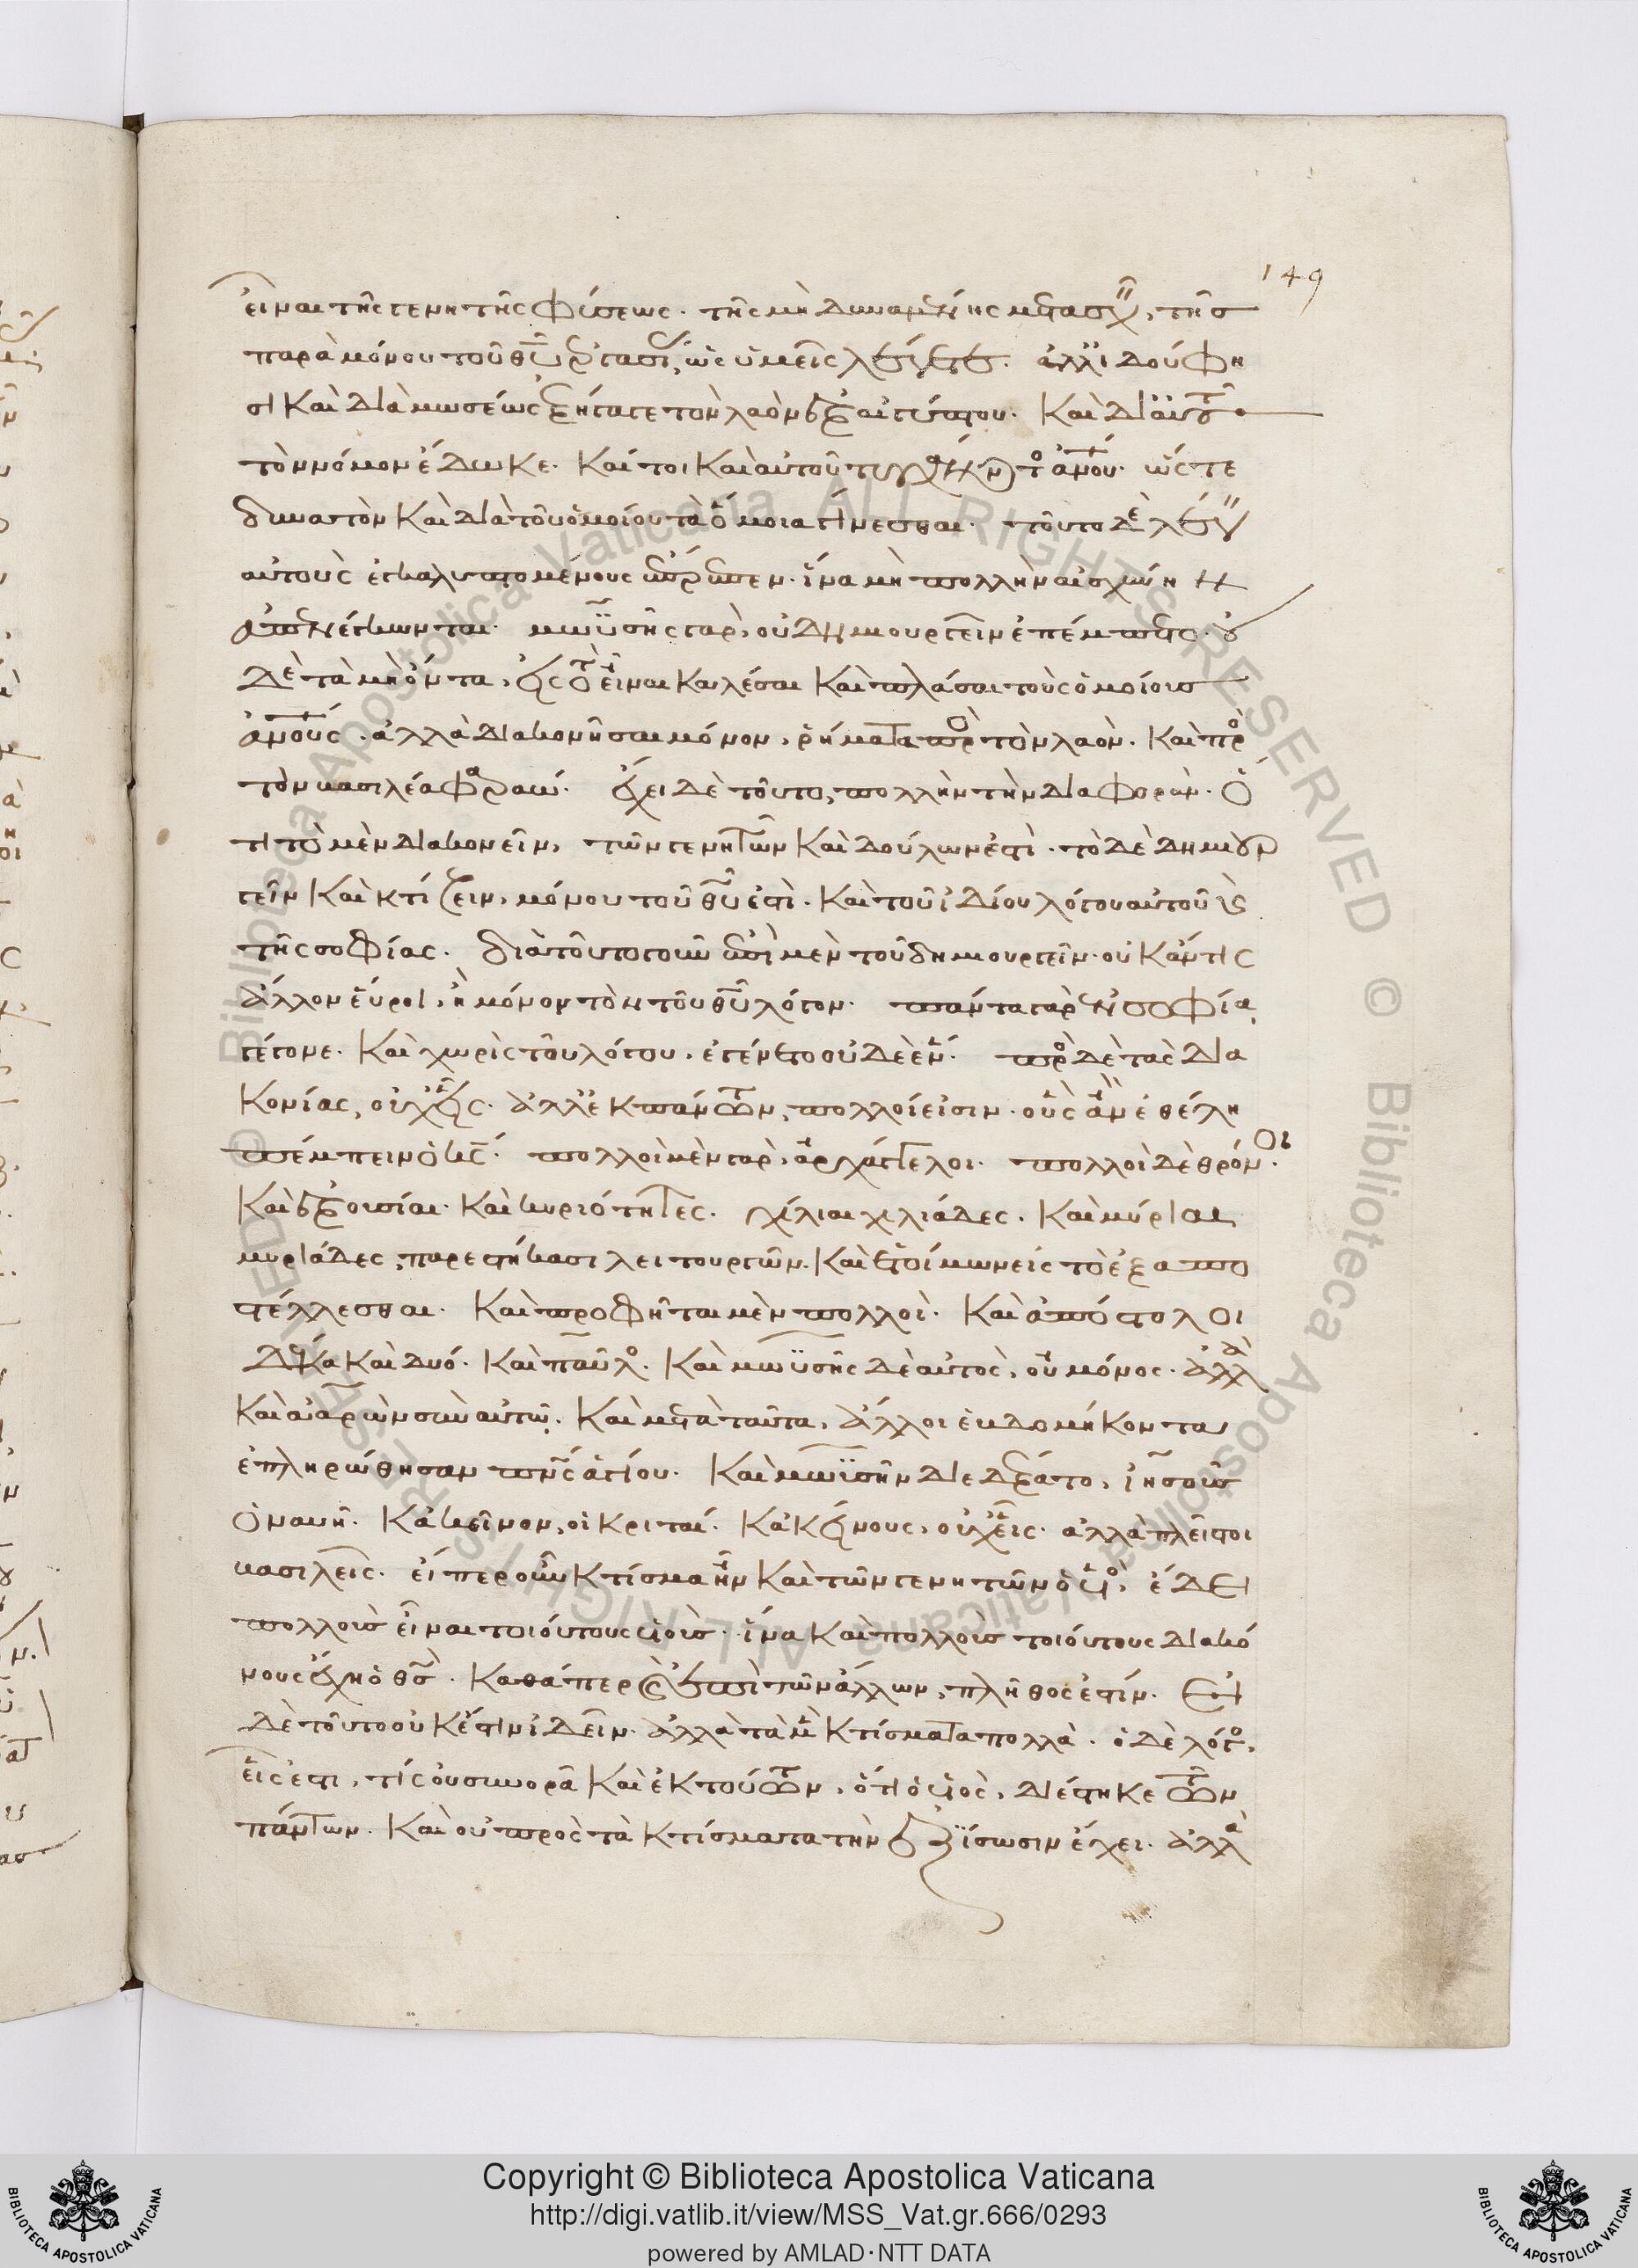 149
εἶναι τῆς γενητῆς φύσεως. τῆς μὴ δυναμένης μετασχεῖν, τῆς
παρὰ μόνου τοῦ θῦ ἐργασίας, ὡς ὑμεῖς λέγετε. ἀλλ' ἰδού φη
σι καὶ διὰ μωσέως ἐξήγαγε τὸν λαὸν ἐξ αἰγύπτου. καὶ δι' αὐτοῦ
τὸν νόμον ἔδωκε. καί τοι καὶ αὐτοῦ τυγχάνοντος ἀνου. ὥς τε
δυνατὸν καὶ διὰ τοῦ ὁμοίου τὰ ὅμοια γίνεσθαι. τοῦτο δὲ λέγειν
αὐτοὺς ἐγκαλυπτομένους ἔπρεπεν. ἵνα μὴ πολλὴν αἰσχύνην
ἀπενέγκωνται. μωϋσῆς γαρ, οὐ δημιουργεῖν ἐπέμπετο. οὐ
δὲ τὰ μὴ ὄντα, εἰς τὸ εἶναι καλέσαι καὶ πλάσαι τοὺς ὁμοίους
ἀνους. ἀλλὰ διακονῆσαι μόνον, ῥήματα πρὸς τὸν λαὸν. καὶ πρὸς
τὸν βασιλέα φαραώ. ἔχει δὲ τοῦτο, πολλὴν τὴν διαφορὰν. ὅ
τι τὸ μὲν διακονεῖν, τῶν γενητῶν καὶ δούλων ἐστὶ. τὸ δὲ δημιουρ
γεῖν καὶ κτίζειν, μόνου τοῦ θῦ ἐστὶ. καὶ τοῦ ἰδίου λόγου αὐτοῦ καὶ
τῆς σοφίας. διὰ τοῦτο γοῦν ἐπὶ μὲν τοῦ δημιουργεῖν. οὐκ ἄν τις
ἄλλον εὕροι, ἢ μόνον τὸν τοῦ θῦ λόγον. πάντα γαρ ἐν σοφία
γέγονε. καὶ χωρὶς τοῦ λόγου, ἐγένετο οὐδὲ ἕν. πρὸς δὲ τὰς δια
κονίας, οὐχ εἷς. ἀλλ' ἐκ πάντων, πολλοί εἰσιν. οὓς ἂν ἐθέλη
πέμπειν ὁ κς. πολλοὶ μὲν γαρ, ἀρχάγγελοι. πολλοὶ δὲ θρόνοι.
καὶ ἐξουσίαι. καὶ κυριότητες. χίλιαι χιλιάδες. καὶ μύριαι
μυριάδες, παρεστήκασι λειτουργῶν. καὶ ἕτοιμων εἰς τὸ ἐξαπο
στέλλεσθαι. καὶ προφῆται μὲν πολλοὶ. καὶ ἀπόστολοι
δέκα καὶ δυό. καὶ παῦλος. καὶ μωϋσῆς δὲ αὐτὸς, οὐ μόνος. ἀλλὰ
καὶ ἀαρὼν σὺν αὐτῷ. καὶ μετὰ ταῦτα, ἄλλοι ἑβδομήκοντα
ἐπληρώθησαν πνς ἁγίου. καὶ μωϋσῆν διεδέξατο, ἰησοῦς
ὁ ναυῆ. κἀκεῖνον, οἱ κριταί. κἀκείνους, οὐχ εἷς. ἀλλὰ πλεῖστοι
βασιλεῖς. εἴπερ οὖν κτίσμα ἦν καὶ τῶν γενητῶν ὁ υἱὸς, ἔδει
πολλοὺς εἶναι τοιούτους υἱοὺς. ἵνα καὶ πολλοὺς τοιούτους διακό
νους ἔχη ὁ θς. καθάπερ καὶ ἐπὶ τῶν ἄλλων, πλῆθος ἐστίν. εἰ
δὲ τοῦτο οὐκ ἔστιν ἰδεῖν. ἀλλὰ τὰ μὲν κτίσματα πολλὰ. ὁ δὲ λόγος,
εἷς ἐστι, τίς οὐ συνορᾶ καὶ ἐκ τούτων, ὅτι ὁ υἱὸς, διέστηκε τῶν
πάντων. καὶ οὐ πρὸς τὰ κτίσματα τὴν ἐξίσωσιν ἔχει. ἀλλὰ
Copyright © Biblioteca Apostolica Vaticana
http://digi.vatlib.it/view/MSS_Vat.gr.666/0293
powered by AMLAD·NTT DATA